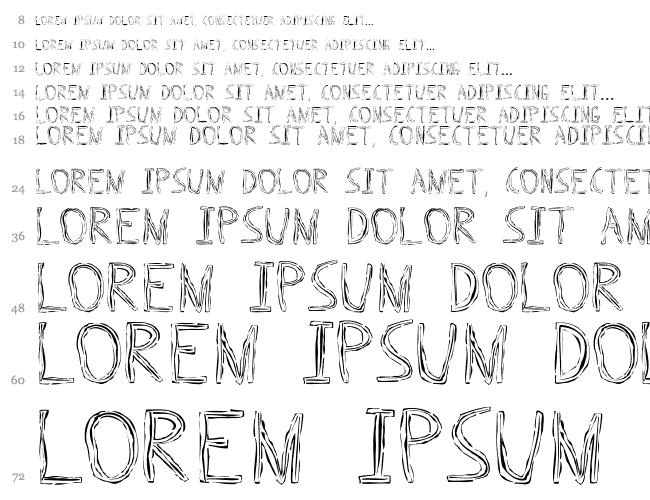 8 LOREM IPSUM DOLOR SIT AMET, CONSECTETUER ADIPISCING ELIT...
10 LOREM IPSUM DOLOR SIT AMET, CONSECTETUER ADIPISCING ELIT...
12 LOREM IPSUM DOLOR SIT AMET, CONSECTETUER ADIPISCING ELIT...
14 LOREM IPSUM DOLOR SIT AMET, CONSECTETUER ADIPISCING ELIT...
16 LOREM IPSUM DOLOR SIT AMET, CONSECTETUER ADIPISCING ELIT
18 LOREM IPSUM DOLOR SIT AMET, CONSECTETUER ADIPISCI
24 LOREM IPSUM DOLOR SIT AMET, CONSECTET
36 LOREM IPSUM DOLOR SIT AM
48 LOREM IPSUM DOLOR
60 LOREM IPSUM DOL
72 LOREM IPSUM